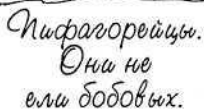 Пифагорейцы.
Они не
ели бобовых.